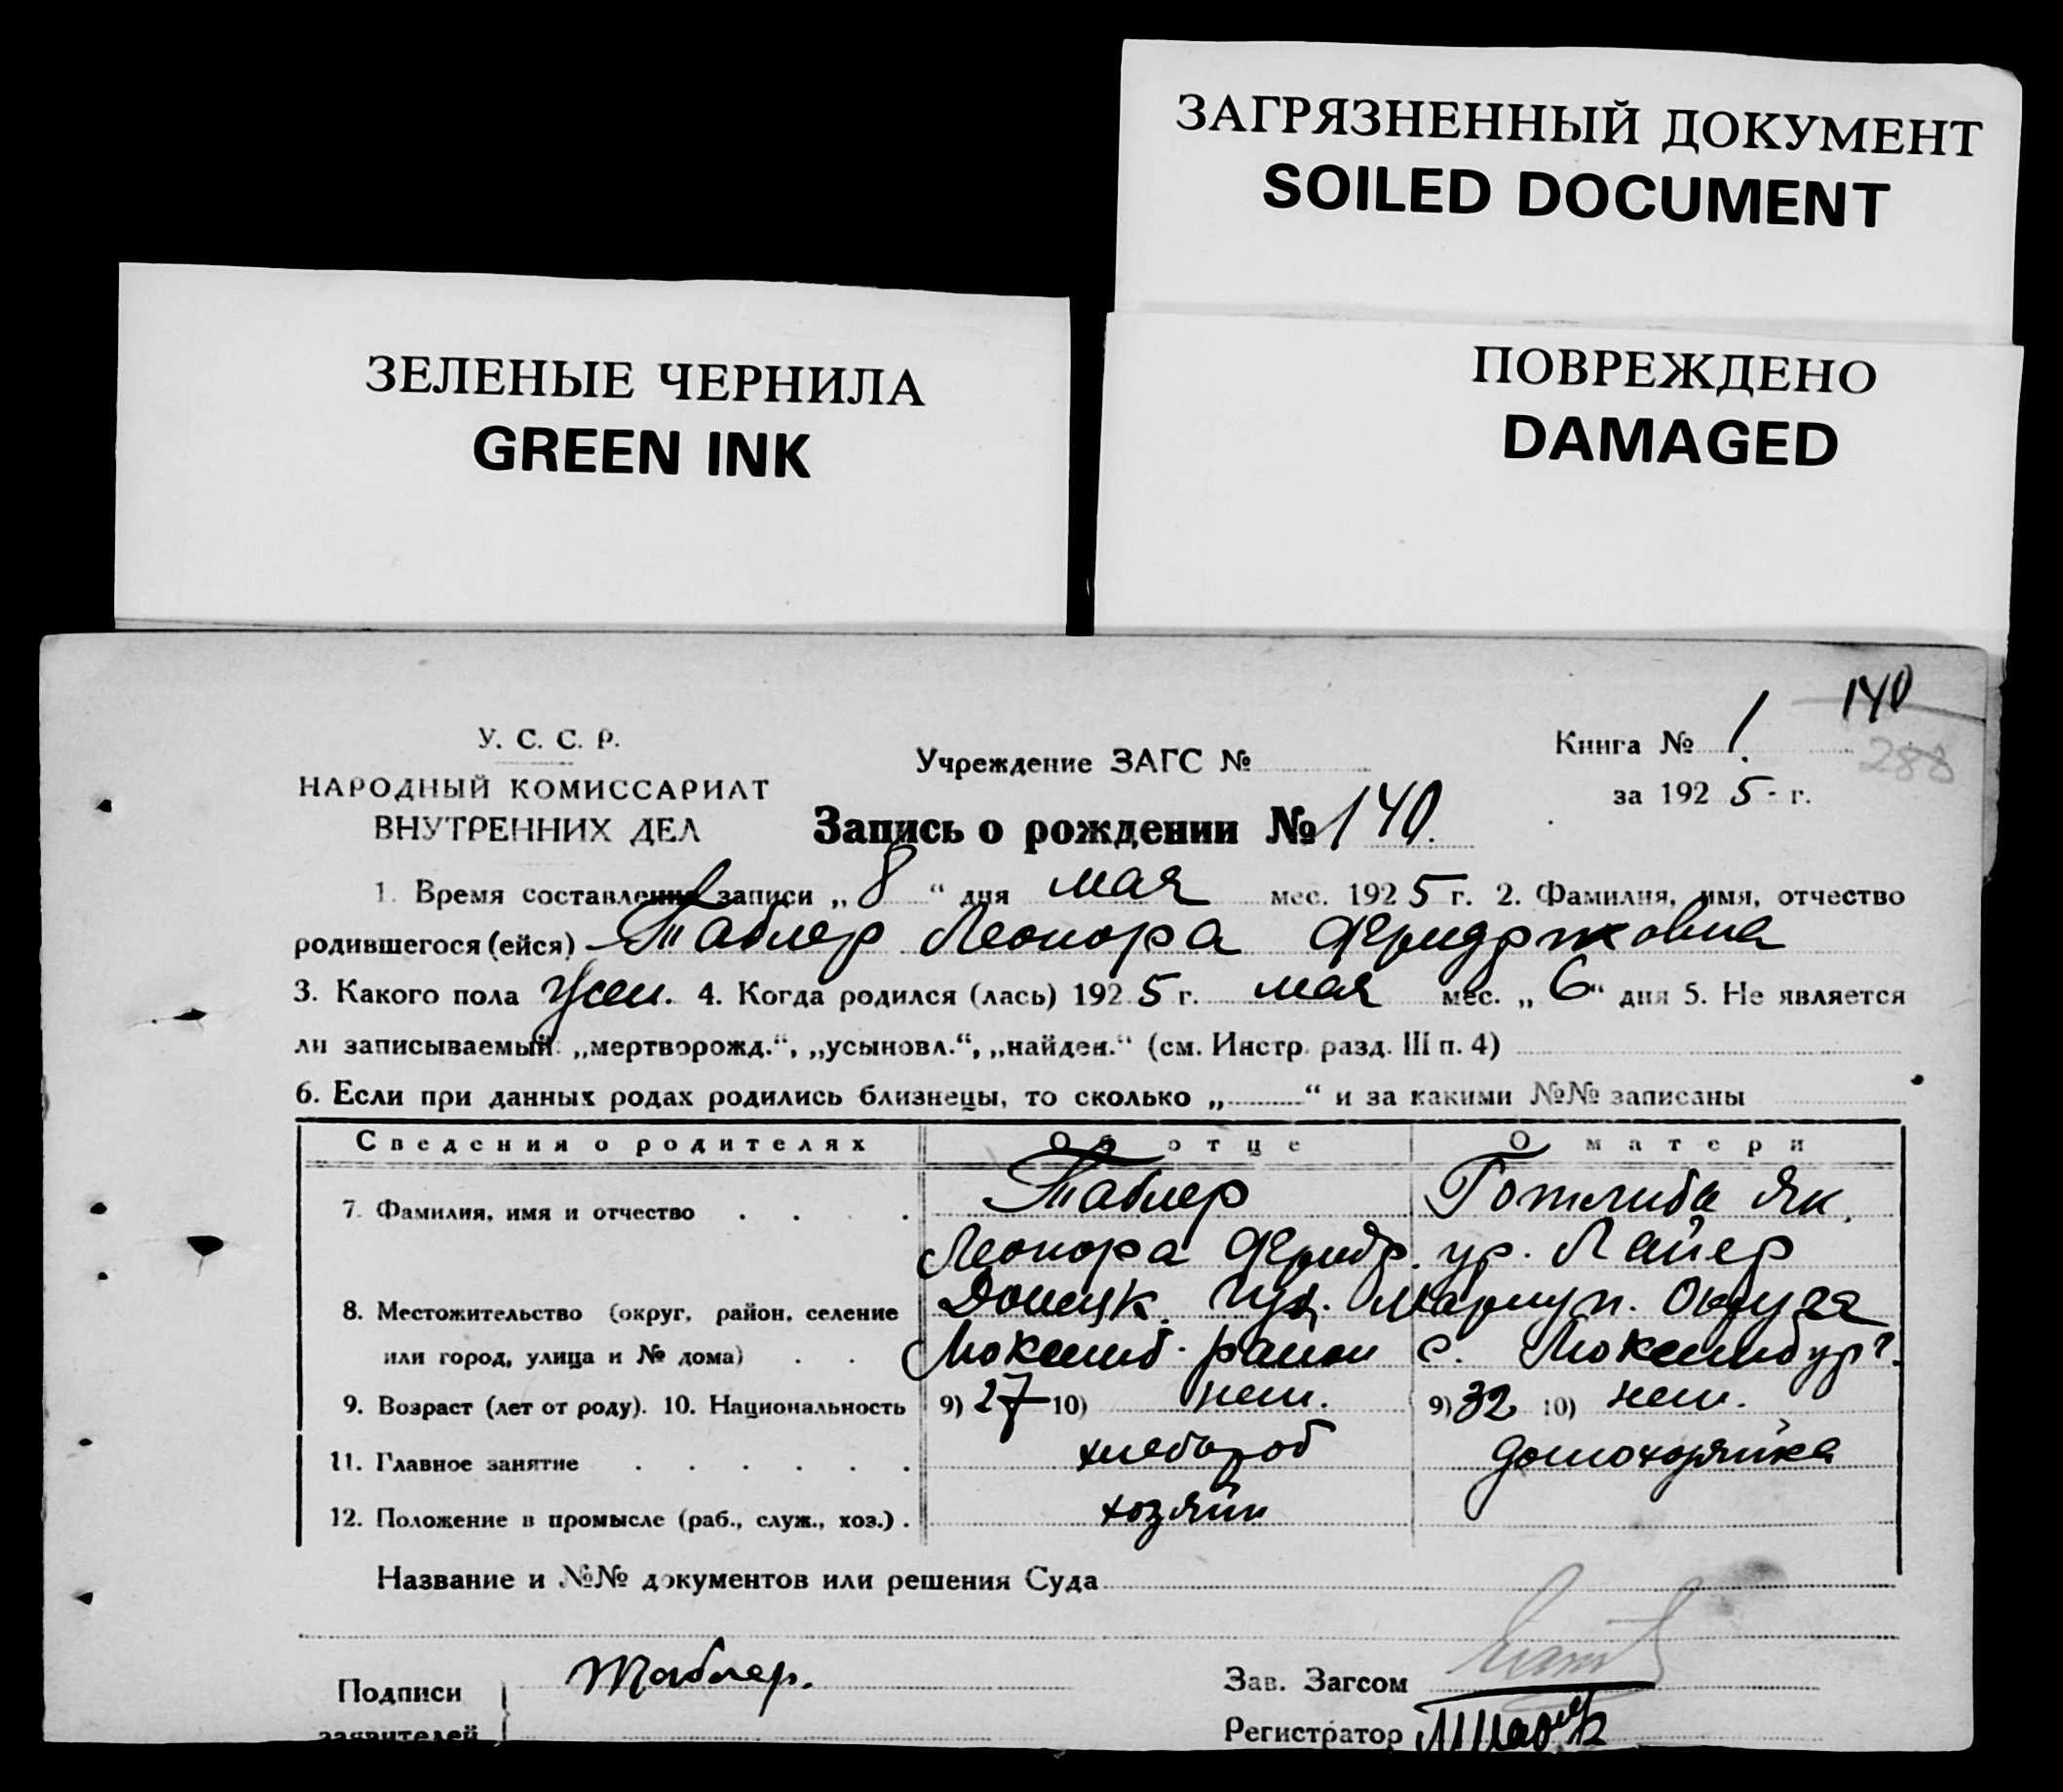 ЗАГРЯЗНЕННЫЙ ДОКУМЕНТ
SOILED DOCUMENT
ЗЕЛЕНЫЕ ЧЕРНИЛА
GREEN INK
ПОВРЕЖДЕНО
DAMAGED
140
288
У. С. С. Р.
НАРОДНЫЙ КОМИССАРИАТ
ВНУТРЕННИХ ДЕЛ
Учреждение ЗАГС №
Книга № 1.
за 1925 г.
Запись о рождении № 140.
1. Время составления записи „8“ дня мая мес. 1925 г. 2. Фамилия, имя, отчество
родившегося (ейся) Таблер Леонора
3. Какого пола жен. 4. Когда родился (лась) 1925 г. мая мес. „6“ дня 5. Не является
ли записываемый: „мертворожд.“, „усыновл.“, „найден.“ (см. Инстр. разд. III п. 4)
6. Если при данных родах родились близнецы, то сколько „ “ и за какими №№ записаны
Сведения о родителях Об отце О матери
7. Фамилия, имя и отчество Таблер Готлиба Як.
Леонора Фридр. ур. Лайер
8. Местожительство (округ, район, селение Донецк. губ. Мариуп. Округа
или город, улица и № дома) район с.
9. Возраст (лет от роду). 10. Национальность 9) 27 10) нем. 9) 32 10) нем.
11. Главное занятие хлебороб домохозяйка
12. Положение в промысле (раб., служ., хоз.) хозяин
Название и №№ документов или решения Суда
Подписи Таблер.
заявителей
Зав. Загсом
Регистратор